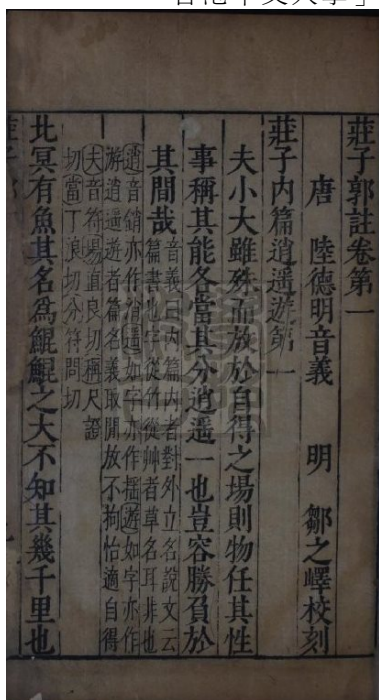 莊子郭註卷第一
唐 陸德明音義 明 鄒之嶧校刻
莊子內篇逍遥遊第一
夫小大雖殊而放於自得之場則物任其性
事稱其能各當其分逍遥一也豈容勝負於
其間哉
音義曰內篇內者對外立名說文云
篇書也字從竹從艸者草名耳非也
逍音銷亦作消遥如字亦作揺遊如字亦作
游逍遥遊者篇名義取閒放不拘怡適自得
夫音符場直良切稱尺證
切當丁浪切分符問切
北冥有魚其名為鯤鯤之大不知其幾千里也